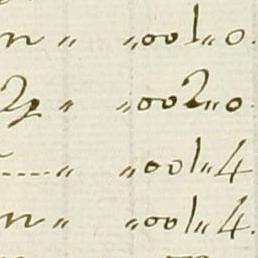 n „ „001„0.
2 „ „002„0
----„ „001„4
n „ „001„4.